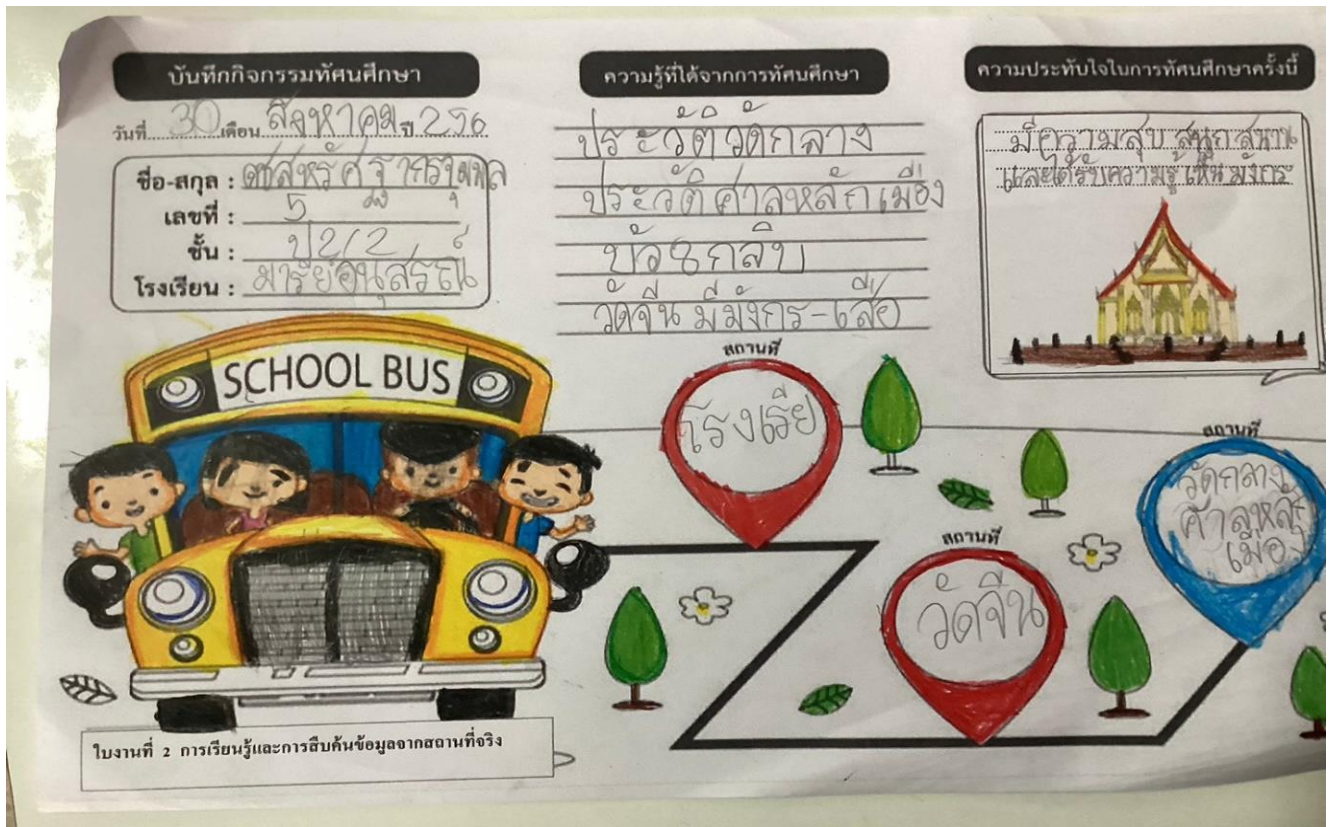 บันทึกกิจกรรมทัศนศึกษา
วันที่ 30 เดือน สิงหาคม ปี 256
ชื่อ-สกุล :
เลขที่ : 5
ชั้น : ป2/2
โรงเรียน : มารีย์อนุสรณ์
SCHOOL BUS
ใบงานที่ 2 การเรียนรู้และการสืบค้นข้อมูลจากสถานที่จริง
ความรู้ที่ได้จากการทัศนศึกษา
ประวัติวัดกลาง
ประวัติศาลหลักเมือง
วัดจีน มีมังกร-เสือ
ความประทับใจในการทัศนศึกษาครั้งนี้
มีความสุข สนุกสนาน
และได้รับความรู้ เห็นมังกร
สถานที่
โรงเรีย
สถานที่
วัดจีน
สถานที่
วัดกลาง
ศาลหลัก
เมือง